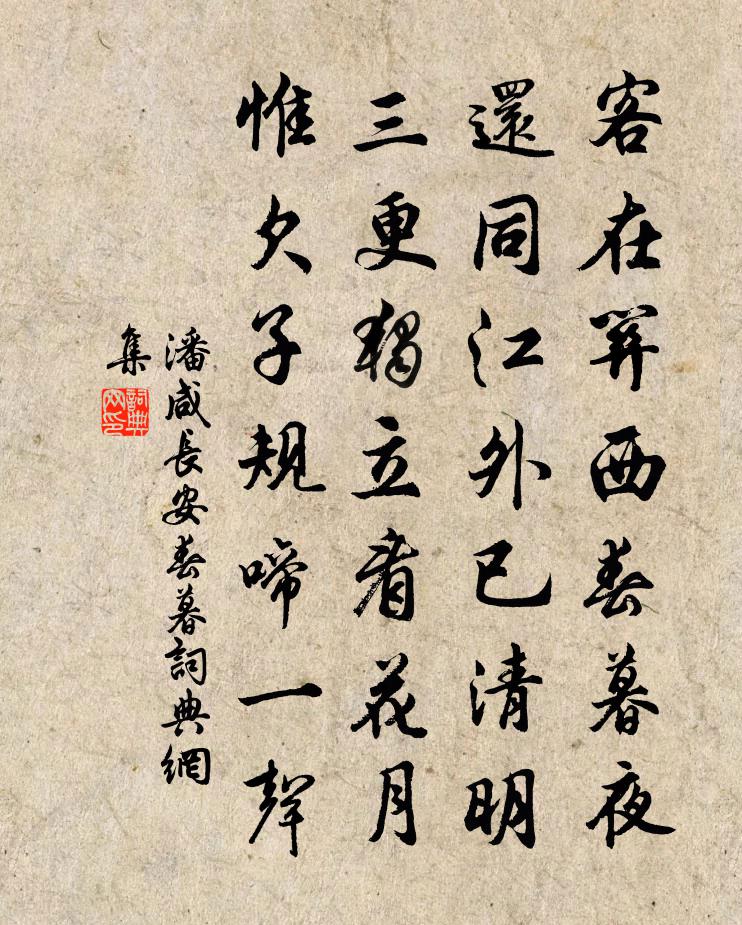 客在關西春暮夜
還同江外已清明
三更獨立看花月
惟欠子規啼一聲
潘咸長安春暮詞典網
集
詞典
网印